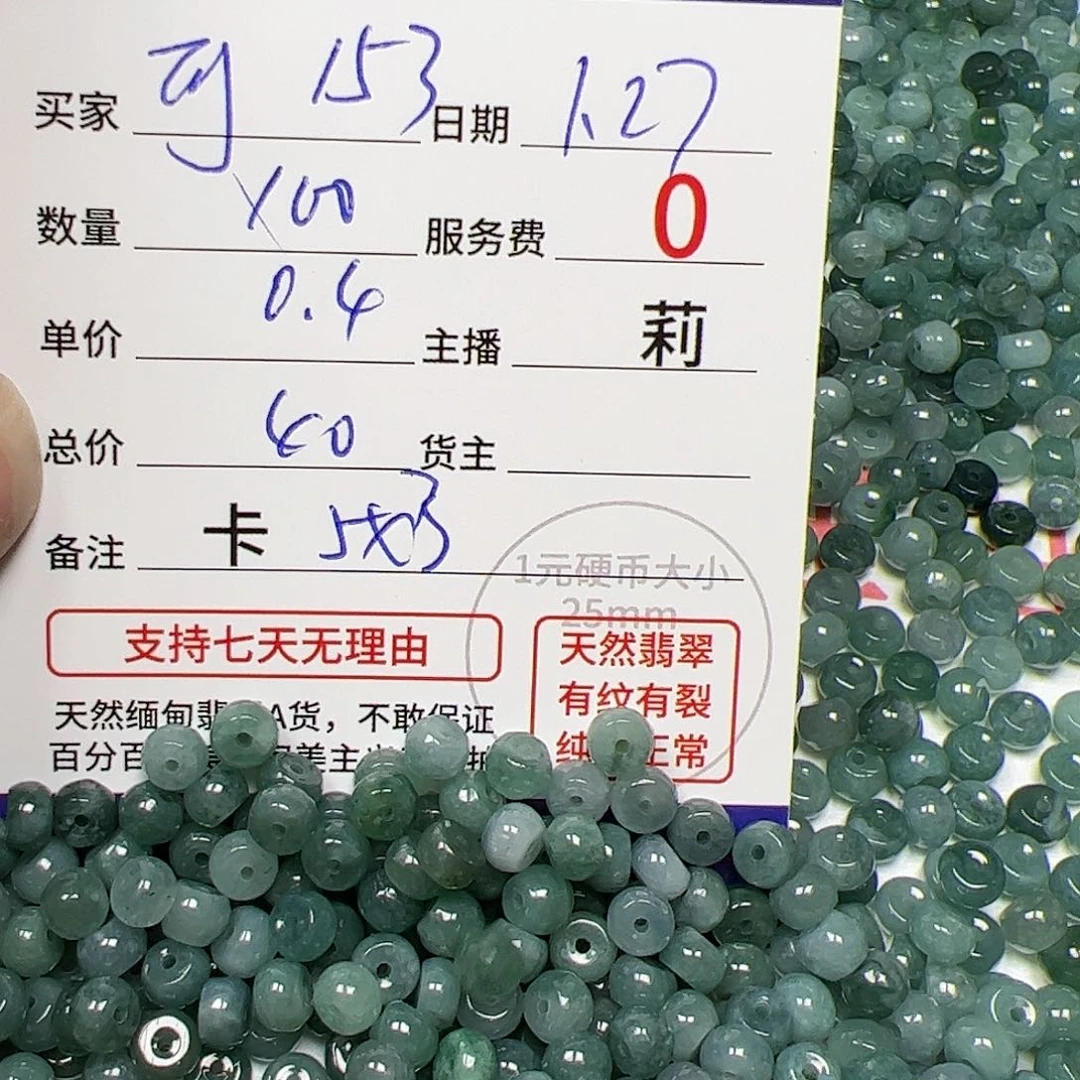 买家 153 日期 1.27
数量 100 服务费 0
单价 0.4 主播 莉
总价 40 货主
备注 卡 5x3
1元硬币大小
25mm
支持七天无理由
天然翡翠
有纹有裂
纯 正常
天然缅甸翡 A货，不敢保证
百分百 美主